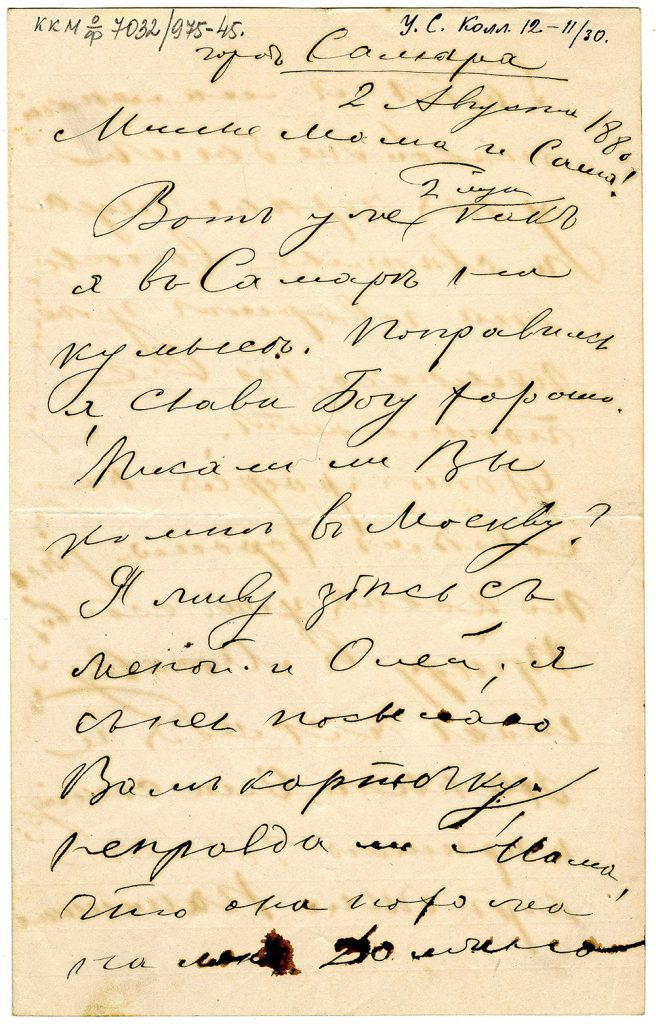 ККМ ОФ 7032/975-45.
У. С. Колл. 12-11/30.
городъ Самара
2 Августа 1880
Милые мама и Саша!
Вотъ уже какъ
я въ Самарѣ на
кумысѣ. Поправилась
я, слави Богу хорошо.
Писали ли Вы
ко мнѣ въ Москву?
Я живу здѣсь съ
и Олей, я
съ ней посылаю
Вамъ карточку.
неправда ли Мама,
что она похожа
на